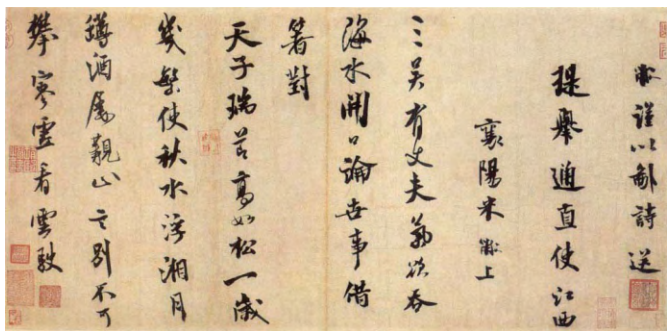 黻謹以鄙詩送
提舉通直使江西
襄陽米黻上
三吳有丈夫氣欲吞
海水開口論世事借
箸對
天子瑞節高如松一歲
幾繁使秋水浮湘月
罇酒屬言別不可
攀寒雲看雲駛